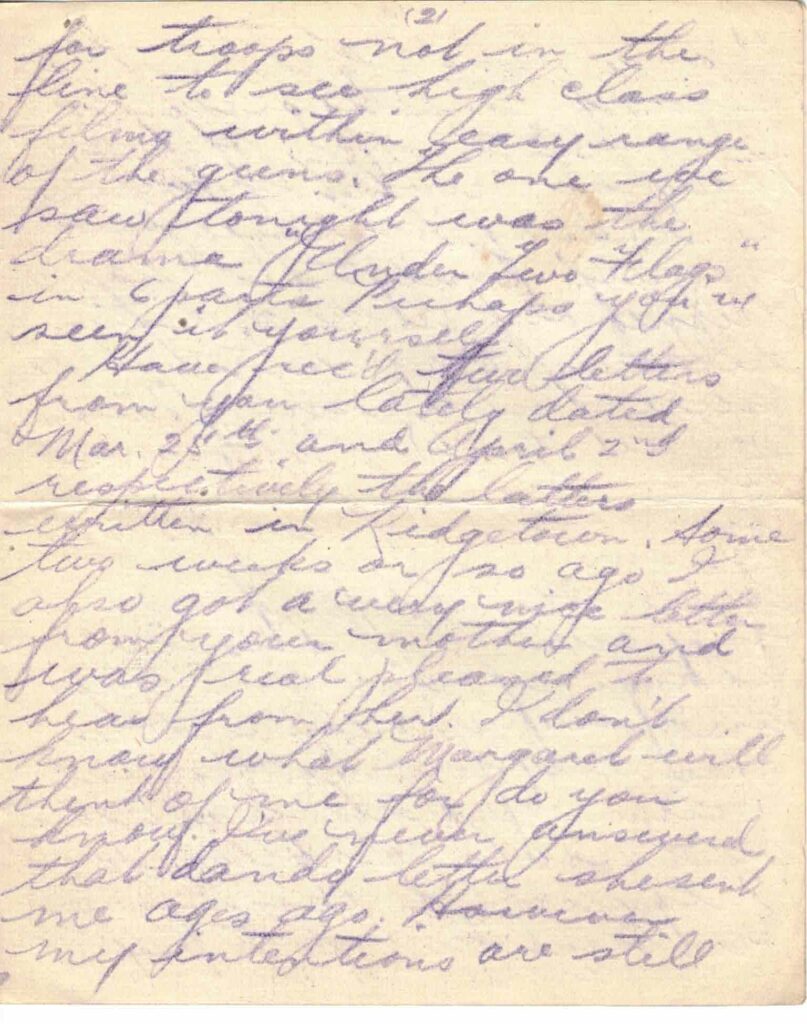 (2)
for troops not in the
line to see high class
films within easy range
of the guns. The one we
saw tonight was the
drama "Under Two Flags"
in 6 parts Perhaps you've
seen it yourself.
Have rec'd two letters
from you lately dated
Mar. 25th and April 2nd
respectively the latter
written in Ridgetown. Some
two weeks or so ago I
also got a very nice letter
from your mother and
was real pleased to
hear from her. I don't
know what Margaret will
think of me for do you
know I've never answered
that dandy letter she sent
me ages ago. However
my intentions are still